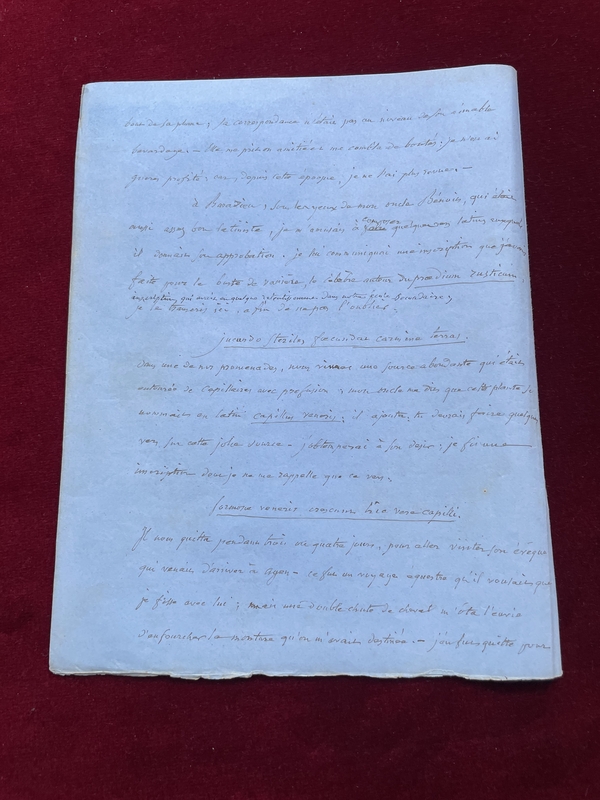 bout de la plume; sa correspondance n'était pas au niveau de son aimable
bavardage. — elle me prit en amitié et me combla de bontés; je n'en ai
guères profité; car, depuis cette époque, je ne l'ai plus revue. —
à Barazieu, sous les yeux de mon oncle Bénivie, qui était
aussi assez bon latiniste, je m'amusais à composer quelques vers latins auxquels
il donnait son approbation. je lui communiquai une inscription que j'avais
faite pour le buste de vanière, le célèbre auteur du prædium rusticum,
inscription, qui avait eu quelque retentissement dans notre école secondaire;
je la transcris ici, afin de ne pas l'oublier:
jucundo steriles fecundat carmine terras.
Dans une de nos promenades, nous vimes une source abondante qui était
entourée de capillaires avec profusion; mon oncle me dit que cette plante se
nommait en latin capillus veneris; il ajouta, tu devrais faire quelques
vers sur cette jolie source — j'obtempérai à son désir; je fis une
inscription dont je ne me rappelle que ce vers.
formosæ veneris crescunt hic vere capilli.
Il nous quitta pendant trois ou quatre jours, pour aller visiter son évêque
qui venait d'arriver à agen — ce fut un voyage equestre qu'il voulait que
je fisse avec lui; mais une double chute de cheval m'ôta l'envie
d'enfourcher la monture qu'on m'avait destinée. — j'en fus quitte pour